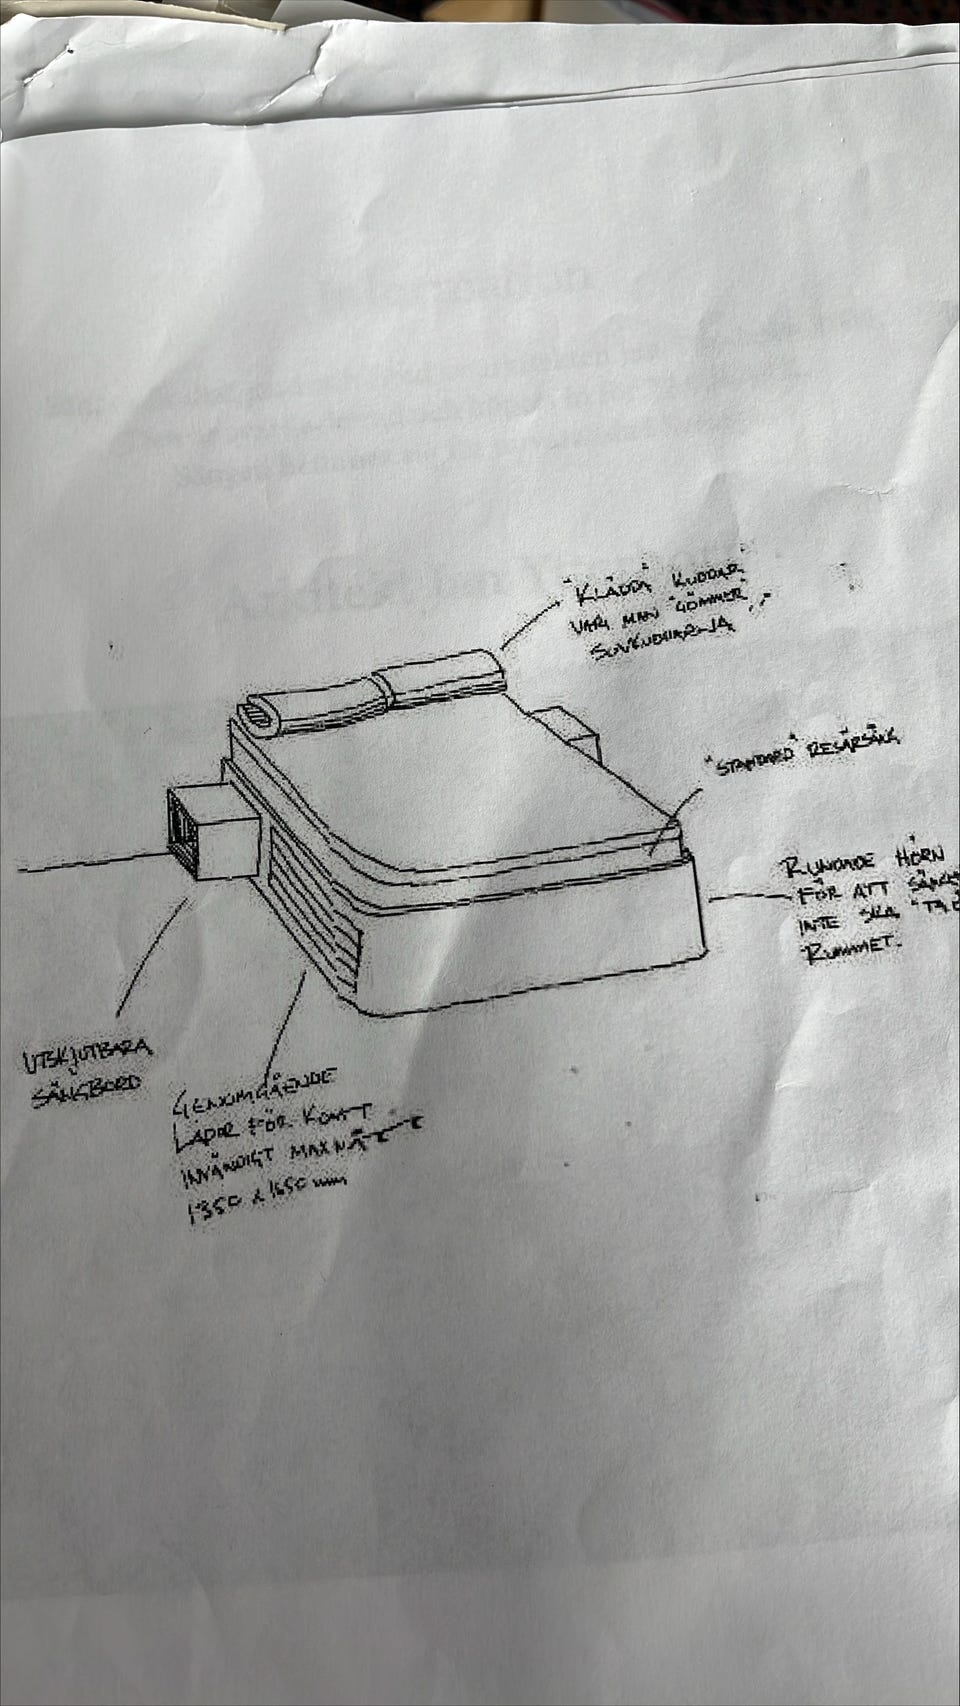 "KLÄDDA" KUDDAR
VARI MAN "GÖMMER"
"STANDARD" RESÅRSÄNG
RUNDADE HÖRN
FÖR ATT SÄNGEN
INTE SKA "TA
RUMMET.
UTSKJUTBARA
SÄNGBORD
GENOMGÅENDE
LÅDOR FÖR KONST
INVÄNDIGT MAXMÅTT
1350 x 1650 mm